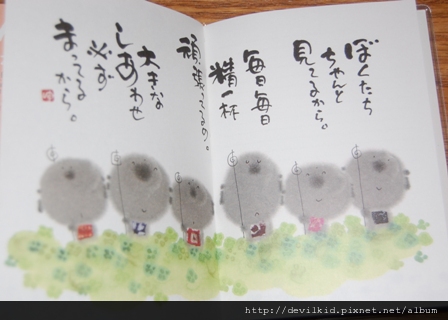 ぼくたち
ちゃんと
見てるから。
毎日毎日
精一杯
頑張ってるの。
大きな
しあわせ
必ず
まってる
から。
http://devilkid.pixnet.net/album